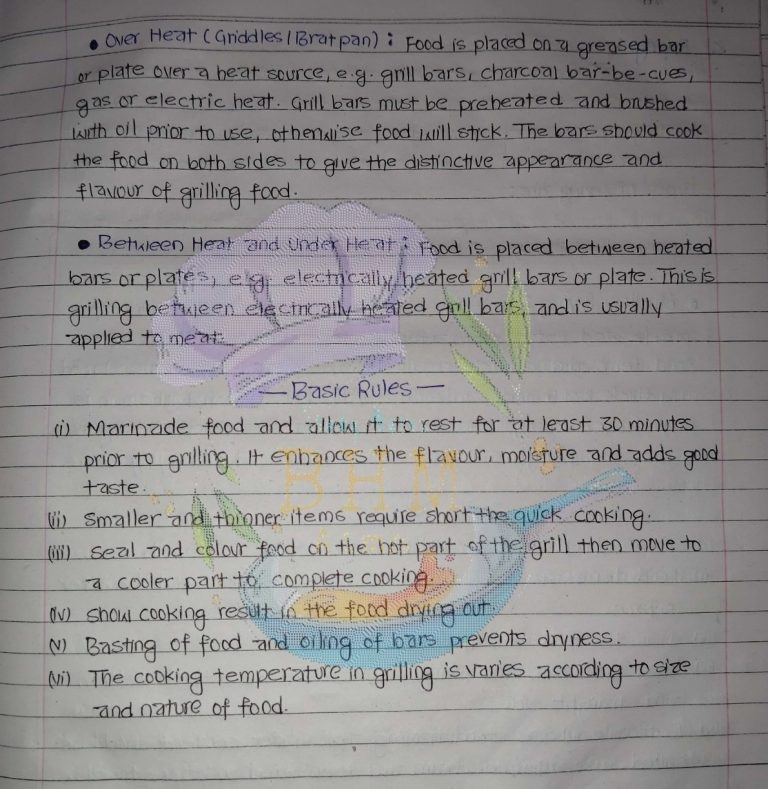 • Over Heat (Griddles/Bratpan) : Food is placed on a greased bar
or plate over a heat source, e.g. grill bars, charcoal bar-be-cues,
gas or electric heat. Grill bars must be preheated and brushed
with oil prior to use, otherwise food will stick. The bars should cook
the food on both sides to give the distinctive appearance and
flavour of grilling food.
• Between Heat and Under Heat : Food is placed between heated
bars or plates, e.g. electrically heated grill bars or plate. This is
grilling between electrically heated grill bars, and is usually
applied to meat.
— Basic Rules —
(i) Marinade food and allow it to rest for at least 30 minutes
prior to grilling. It enhances the flavour, moisture and adds good
taste.
(ii) Smaller and thinner items require short the quick cooking.
(iii) Seal and colour food on the hot part of the grill then move to
a cooler part to complete cooking.
(iv) Show cooking result in the food drying out.
(v) Basting of food and oiling of bars prevents dryness.
(vi) The cooking temperature in grilling is varies according to size
and nature of food.
BHM